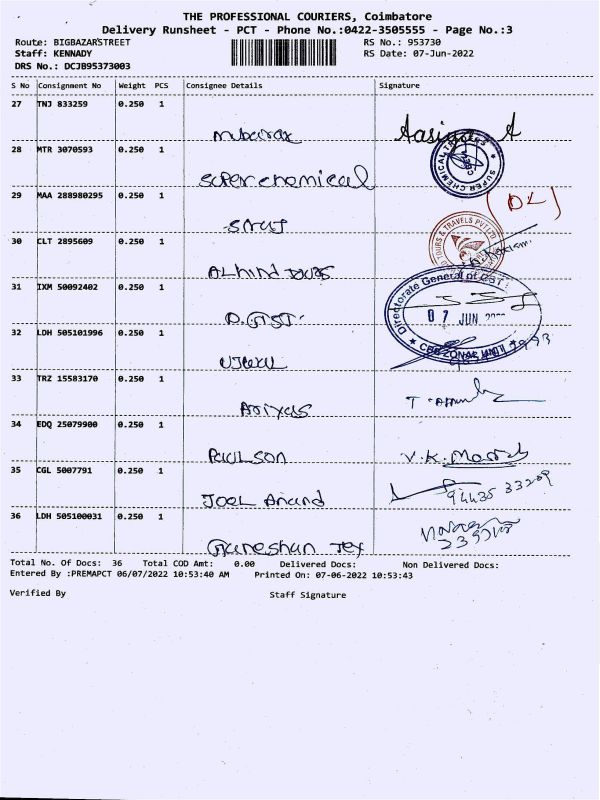 THE PROFESSIONAL COURIERS, Coimbatore
Delivery Runsheet - PCT - Phone No.:0422-3505555 - Page No.:3
Route: BIGBAZARSTREET RS No.: 953730
Staff: KENNADY RS Date: 07-Jun-2022
DRS No.: DCJB95373003
S No Consignment No Weight PCS Consignee Details Signature
27 TNJ 833259 0.250 1
mubarax Aasiya A
28 MTR 3070593 0.250 1
superchemical SUPER CHEMICAL
29 MAA 288980295 0.250 1
(DL)
30 CLT 2895609 0.250 1
ALhind Tours TOURS & TRAVELS PVT LTD
31 IXM 50092402 0.250 1
D.GST. Directorate General of GST
07 JUN
32 LDH 505101996 0.250 1
33 TRZ 15583170 0.250 1
Ariyas
34 EDQ 25079900 0.250 1
Paulson V.K.
35 CGL 5007791 0.250 1
Joel Anand 94435 33209
36 LDH 505100031 0.250 1
Ganeshan Tex
Total No. Of Docs: 36 Total COD Amt: 0.00 Delivered Docs: Non Delivered Docs:
Entered By :PREMAPCT 06/07/2022 10:53:40 AM Printed On: 07-06-2022 10:53:43
Verified By Staff Signature